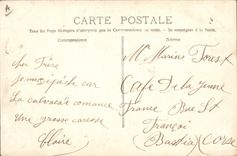 CARTE POSTALE
Tous les Pays étrangers n'acceptent pas la Correspondance au recto. Se renseigner à la Poste.
Correspondance
Adresse
Cher Frère
Je me dépêche car
La cavalcade comance
Une grosse caresse
Claire
Mr Marius Toust
Café De la Jeune
France Rue St
François
Bastia (Corse